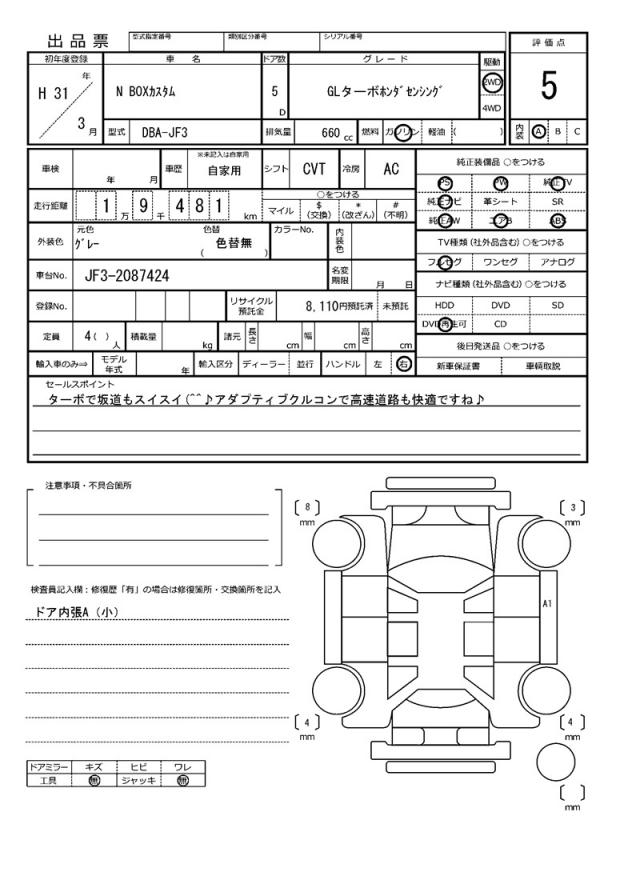 出品票
型式指定番号 類別区分番号 シリアル番号
評価点
初年度登録 車名 ドア数 グレード 駆動
H 31 年 3 月
N BOXカスタム 5 D GLターボホンダセンシング 2WD 4WD
5
型式 DBA-JF3 排気量 660 cc 燃料 ガソリン 軽油 ( )
内装 A B C
車検 年 月 車歴 ※未記入は自家用 自家用 シフト CVT 冷房 AC
純正装備品 ○をつける
PS PW 純正TV
純正ナビ 革シート SR
純正AW エアB ABS
走行距離 1 万 9 千 4 8 1 km
○をつける
マイル $ (交換) * (改ざん) # (不明)
外装色 元色 グレー 色替 色替無 ( ) カラーNo. 内装色
TV種類 (社外品含む) ○をつける
フルセグ ワンセグ アナログ
車台No. JF3-2087424 名変期限 月 日
ナビ種類 (社外品含む) ○をつける
HDD DVD SD
DVD再生可 CD
登録No. リサイクル預託金 8,110円預託済 未預託
定員 4( )人 積載量 kg 諸元 長さ cm 幅 cm 高さ cm
後日発送品 ○をつける
新車保証書 車輌取説
輸入車のみ⇒ モデル年式 年 輸入区分 ディーラー 並行 ハンドル 左 右
セールスポイント
ターボで坂道もスイスイ(^^♪アダプティブクルコンで高速道路も快適ですね♪
注意事項・不具合箇所
検査員記入欄：修復歴「有」の場合は修復箇所・交換箇所を記入
ドア内張A（小）
8 mm
3 mm
A1
4 mm
4 mm
mm
ドアミラー キズ ヒビ ワレ
工具 無 ジャッキ 無